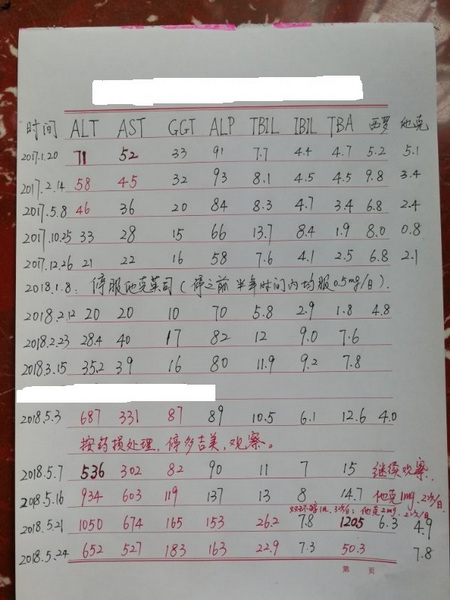 时间 ALT AST GGT ALP TBIL IBIL TBA 西罗 他克
2017.1.20 71 52 33 91 7.7 4.4 4.7 5.2 5.1
2017.2.14 58 45 32 93 8.1 4.5 4.5 9.8 3.4
2017.5.8 46 36 20 84 8.3 4.7 3.4 6.8 2.4
2017.10.25 33 28 15 66 13.7 8.4 1.9 8.0 0.8
2017.12.26 21 22 16 58 7.6 4.1 2.5 6.8 2.1
2018.1.8: 停服他克莫司(停之前半年时间内均服0.5mg/日).
2018.2.12 20 20 10 70 5.8 2.9 1.8 4.8
2018.2.23 28.4 40 17 82 12 9.0 7.6
2018.3.15 35.2 3.9 16 80 11.9 9.2 7.8
2018.5.3 687 331 87 89 10.5 6.1 12.6 4.0
按药损处理,停多吉美,观察。
2018.5.7 536 302 82 90 11 7 15 继续观察.
2018.5.16 934 603 119 137 13 8 14.7 他克1mg, 2次/日
他克2mg, 2次/日
2018.5.21 1050 674 165 153 26.2 7.8 120.5 6.3 4.9
2018.5.24 652 527 183 163 22.9 7.3 50.3 7.8
第 页